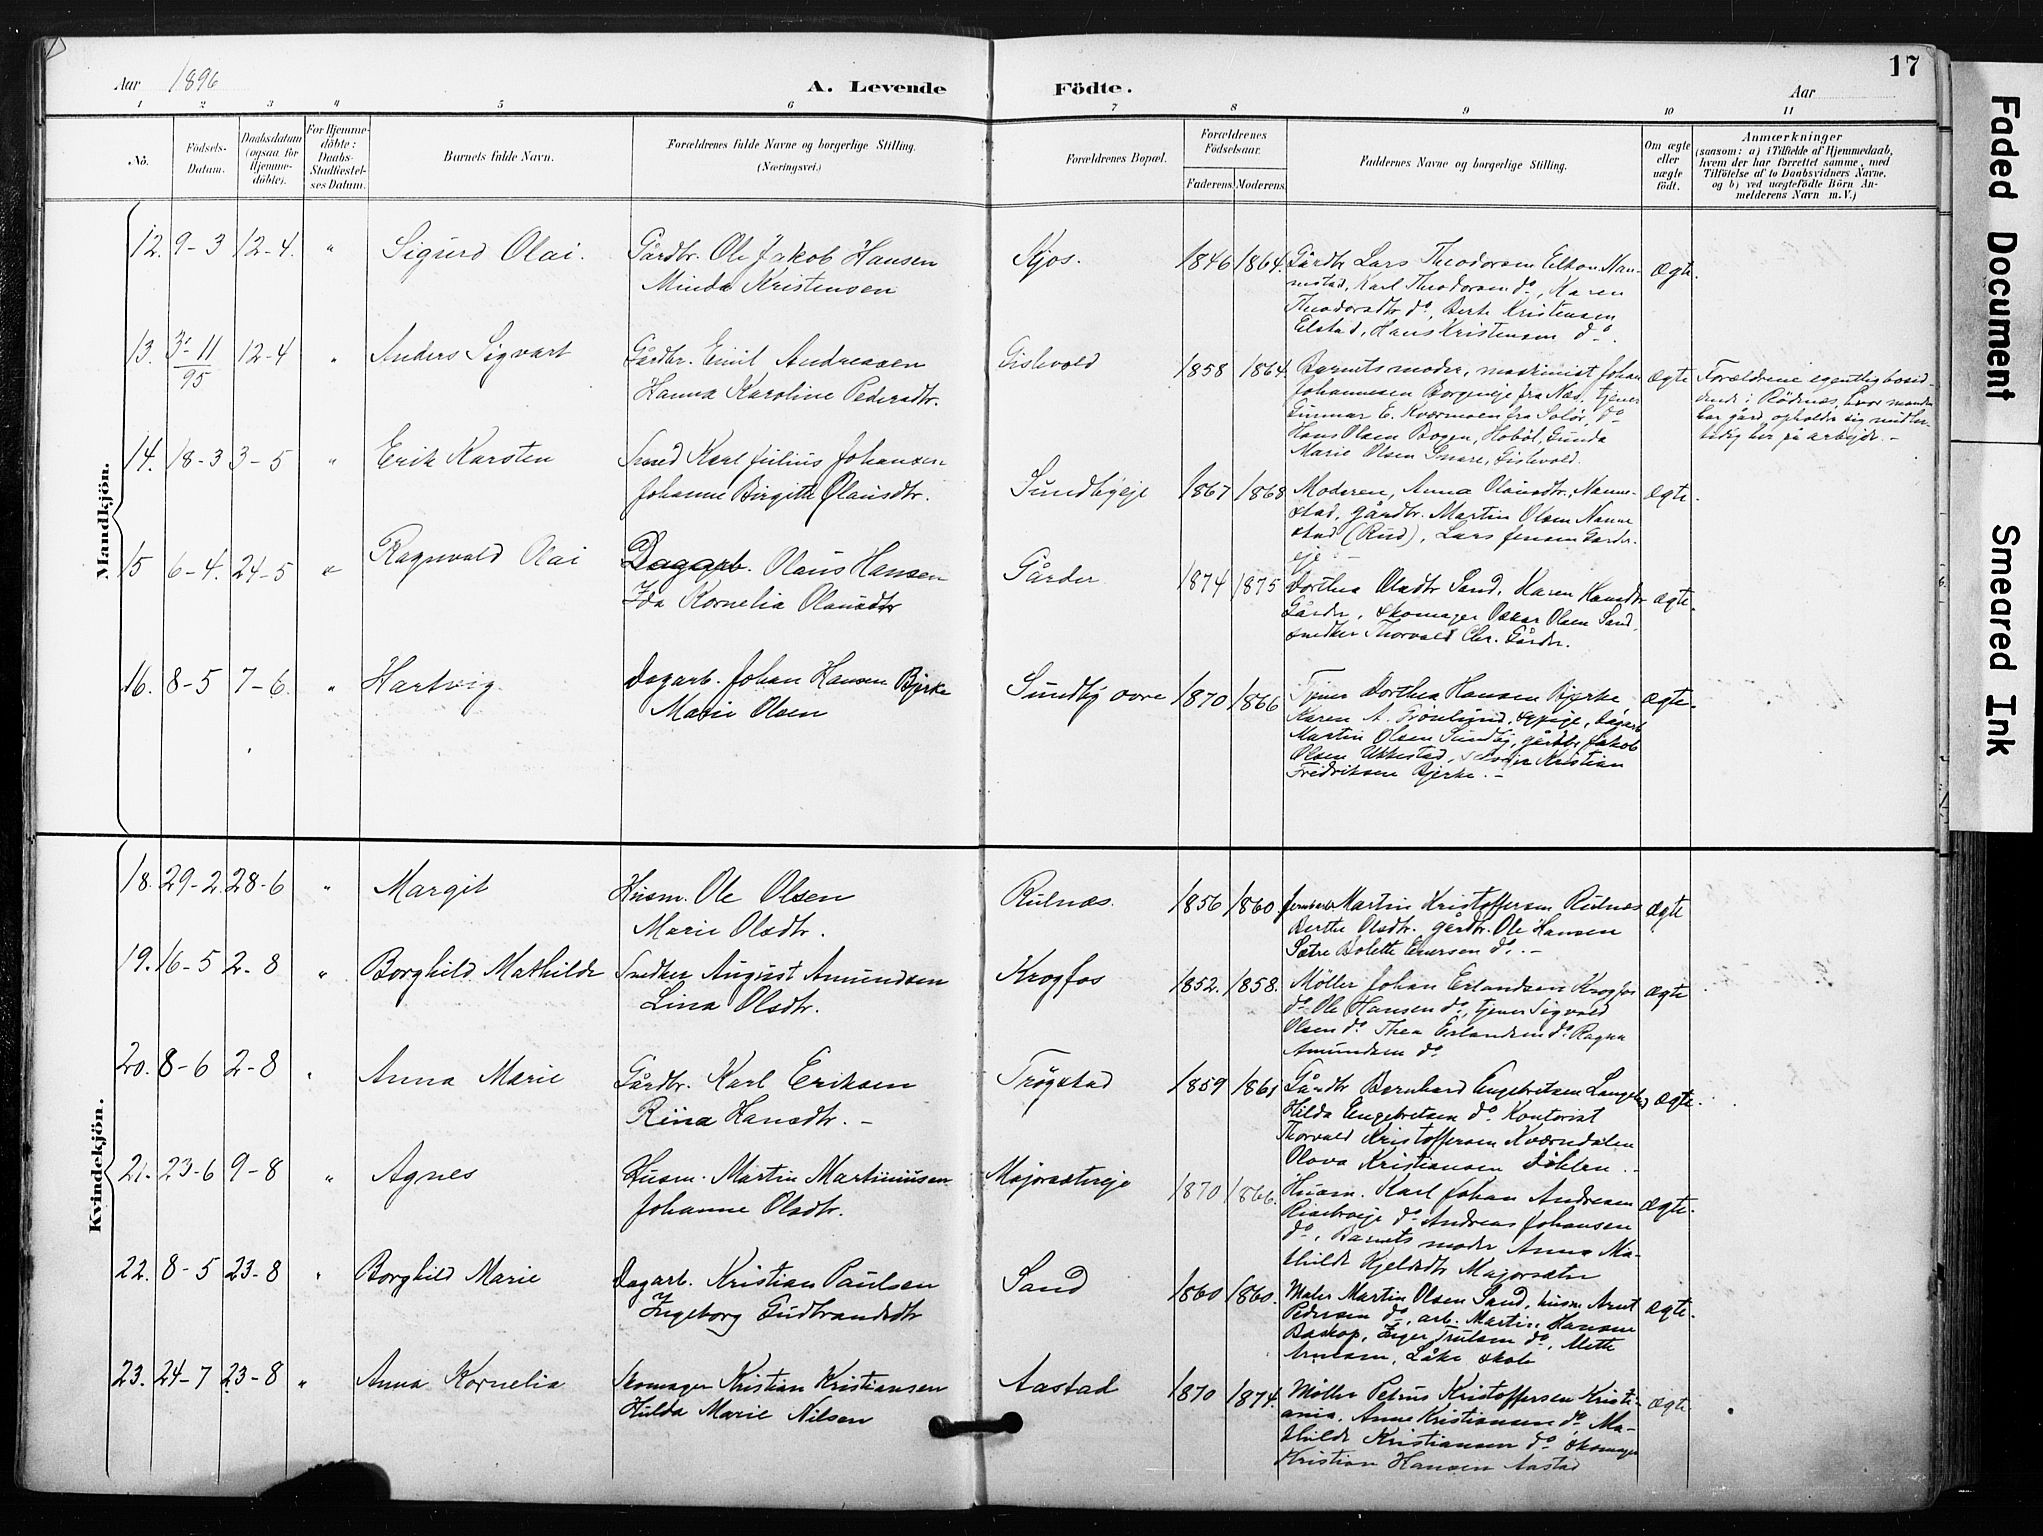 17
Aar 1896
A. Levende Födte.
Aar
1 2 3 4 5 6 7 8 9 10 11
No.
Födsels-Datum.
Daabsdatum (ogsaa for Hjemmedöbte).
For Hjemmedöbte: Daabs-Stadfæstelses Datum.
Barnets fulde Navn.
Forældrenes fulde Navne og borgerlige Stilling.
(Næringsvei.)
Forældrenes Bopæl.
Forældrenes Födselsaar.
Faderens. Moderens.
Faddernes Navne og borgerlige Stilling.
Om ægte eller uægte födt.
Anmærkninger
(saasom: a) i Tilfælde af Hjemmedaab,
hvem der har forrettet samme, med
Tilföielse af to Daabsvidners Navne,
og b) ved uægtefödte Börn An-
melderens Navn m. V.)
Mandkjön.
12. 9-3 12-4. " Sigurd Olai. Gårdbr. Ole Jakob Hansen Kjos. 1846 1864. Gårdbr Lars Theodorsen
Minda Kristensen
Karl Theodorsen do, Karen
Theodorsdtr do, Berte Kristensen
Elstad, Hans Kristensen do.
ægte.
13. 3-11/95 12-4 " Anders Sigvart Gårdbr. Emil Andreasen Gislevold 1858 1864. Barnets moder, maskinist Johan ægte
Hanna Karoline Pedersdtr.
Johannesen Borgeneje fra Næs, tjener
Gunnar E. Kværmoen fra Solør, do
Hans Olsen Bogen, Hobøl, Gunda
Marie Olsen Snare, Gislevold.
Forældrene egentlig bosid-
dende i Rødnæs, hvor manden
har gård, opholder sig midler-
tidig her på arbejde. -
14. 18-3 3-5 " Erik Karsten Smed Karl Julius Johansen Sundbyeje 1867 1868 Moderen, Anna Olausdtr, Nanne- ægte.
Johanne Birgitte Olausdtr.
stad, gårdbr. Martin Olsen Nanne
stad (Rud), Lars Jensen Garder-
eje. -
15 6-4. 24-5 " Ragnvald Olai Dagarb. Olaus Hansen Gårder 1874 1875 Dorthea Olsdtr Sand, Karen Hansdtr ægte.
Ida Kornelia Olausdtr
Gårder, skomager Oskar Olsen Sand,
snedker Thorvald Chr. Gårder.
16. 8-5 7-6. " Hartvig. Dagarb. Johan Hansen Bjerke Sundby øvre 1870 1866 Tjener Dorthea Hansen Bjerke ægte.
Marie Olsen
Karen A. Grønlund, dagarb
Martin Olsen Sundby, gårdbr Jakob
Olsen Ukkestad, Kristian
Fredriksen Bjerke. -
Kvindekjön.
18. 29-2. 28-6 " Margit Husm. Ole Olsen Rulnæs. 1856 1860 Martin Kristoffersen Rulnæs ægte
Marie Olsdtr.
Berthe Olsdtr. gårdbr. Ole Hansen
Sætre Bolette Enersen do. -
19. 16-5 2-8 " Borghild Mathilde Snedker August Amundsen Krogfos 1852. 1858. Møller Johan Erlandsen Krogfos ægte
Lina Olsdtr.
do Ole Hansen do, tjener Sigvald
Olsen do Thea Erlandsen do Ragna
Amundsen do
20. 8-6 2-8 " Anna Marie Gårdbr. Karl Eriksen Trøgstad 1859 1861 Gårdbr Bernhard Engebretsen ægte.
Rina Hansdtr. -
Hilda Engebretsen do Kontorist
Thorvald Kristoffersen Kværndalen
Olova Kristiansen Dihlen. -
21. 23-6 9-8 " Agnes Husm. Martin Martiniusen Majorsætreje 1870 1866. Husm. Karl Johan Andresen ægte.
Johanne Olsdtr.
do Andreas Johansen
do, Barnets moder Anna Ma-
thilde Kjelsdtr Majorsæter
22. 8-5 23-8 " Borghild Marie Dagarb. Kristian Paulsen Sand 1860 1860. Maler Martin Olsen Sand, husm Arnt ægte.
Ingeborg Gudbrandsdtr
Pedersen do, arb. Martin Hansen
Baskop, Inger Trulsen do, Mette
Arnesen, Låke skole
23. 24-7 23-8 " Anna Kornelia Skomager Kristian Kristiansen Aastad 1870 1874. Møller Petrus Kristoffersen Kristi- ægte
Hulda Marie Nilsen
ania, Anne Kristiansen do, Ma-
thilde Kristiansen do skomager
Kristian Hansen Aastad
Faded Document
Smeared Ink